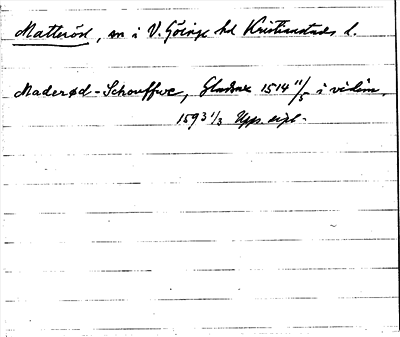 Matteröd, sn i V. Göinge hd Kristianstads l.
Maderød-Schouffwe, Gladsax 1514 11/5 i vidim.
1593 1/3 Upps. expl.